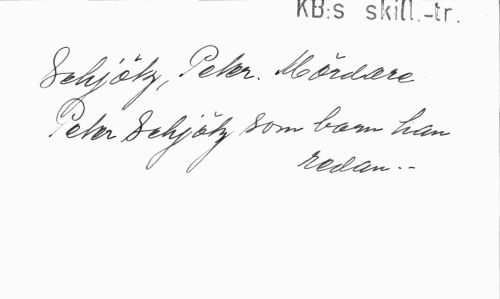 KB:s skill.-tr.
Schjötz, Peter. Mördare
Peter Schjötz som barn han
redan--